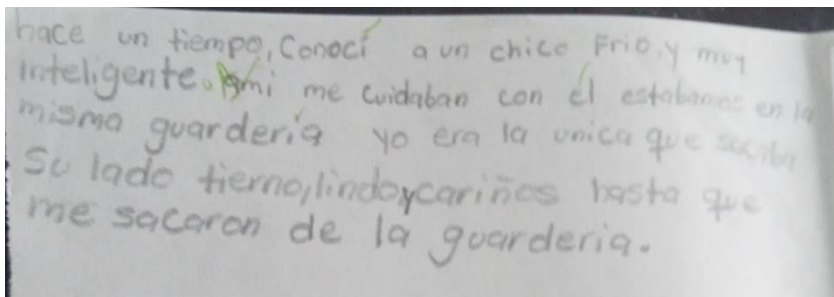 hace un tiempo, Conocí a un chico Frio, y muy
inteligente. Ami me cuidaban con él estabamos en la
misma guardería yo era la unica que sacaba
Su lado tierno, lindo y cariños hasta que
me sacaron de la guarderia.